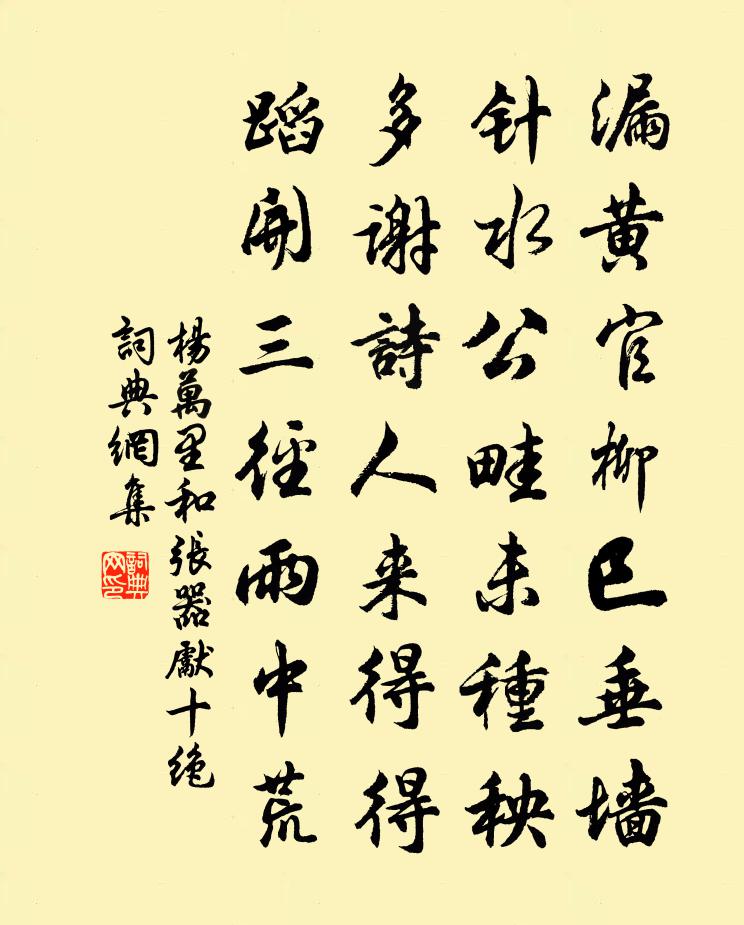 漏黄官柳已垂墙
针水公畦未種秧
多谢詩人来得得
蹈開三徑雨中荒
楊萬里和張器獻十绝
詞典網集
詞典网印